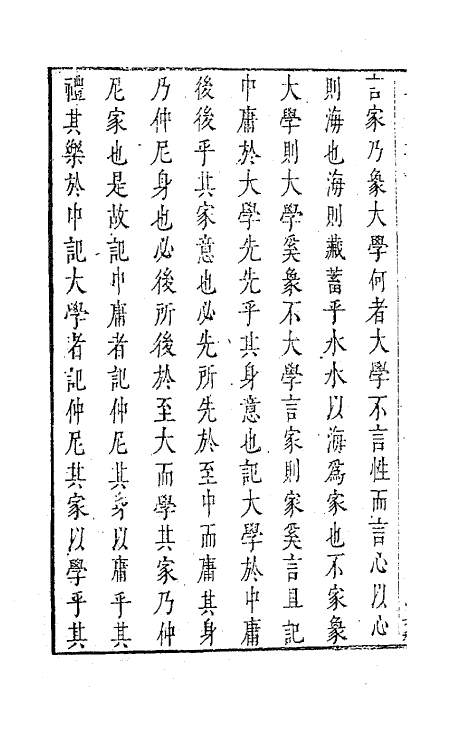 言家乃象大學何者大學不言性而言心以心
則海也海則藏蓄乎水水以海爲家也不家象
大學則大學奚象不大學言家則家奚言且記
中庸於大學先先乎其身意也記大學於中庸
後後乎其家意也必先所先於至中而庸其身
乃仲尼身也必後所後於至大而學其家乃仲
尼家也是故記中庸者記仲尼其身以庸乎其
禮其樂於中記大學者記仲尼其家以學乎其